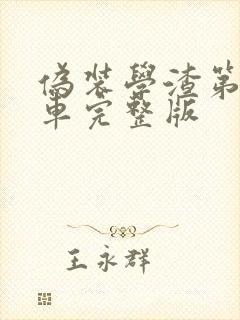 偽裝學渣第
車完整版
王永群